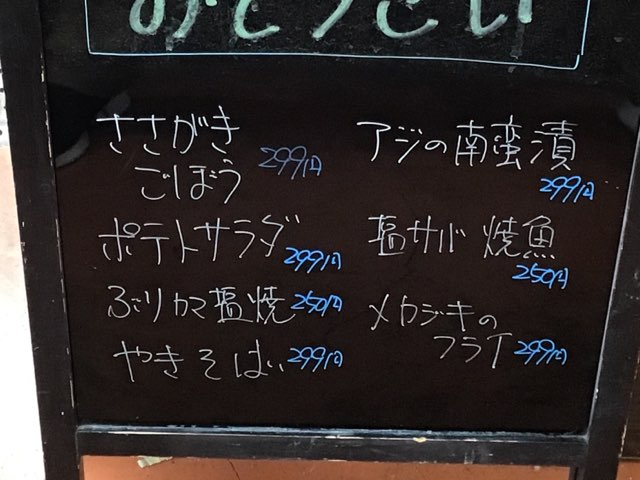 おそうざい
ささがき
ごぼう 299円
ポテトサラダ 299円
ぶりカマ塩焼 250円
やきそば 299円
アジの南蛮漬 299円
塩サバ 焼魚 250円
メカジキの
フライ 299円